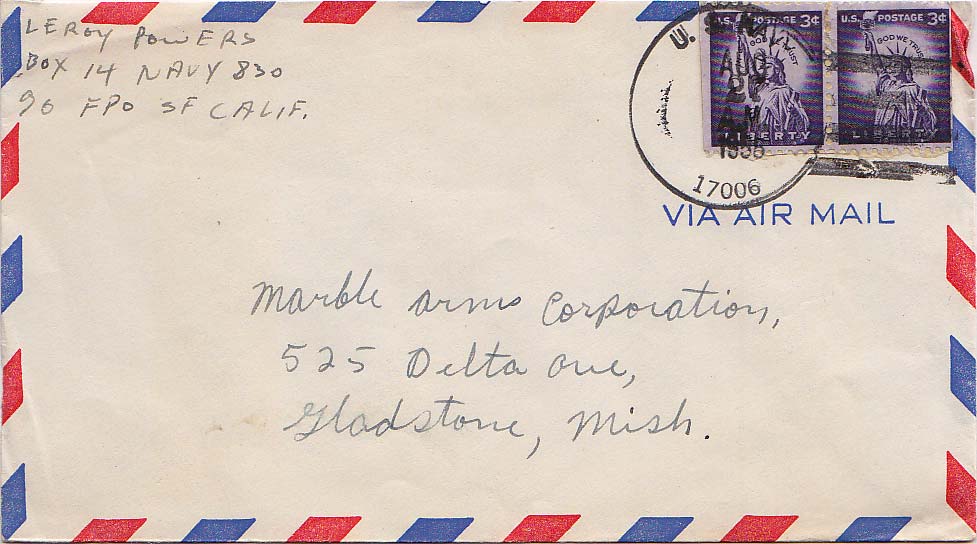 LEROY POWERS
BOX 14 NAVY 830
% FPO SF CALIF.
U.S. NAVY
AUG
21
AM
17006
U.S. POSTAGE 3¢
IN GOD WE TRUST
LIBERTY
U.S. POSTAGE 3¢
IN GOD WE TRUST
LIBERTY
VIA AIR MAIL
Marble arms Corporation,
525 Delta ave,
Gladstone, Mish.